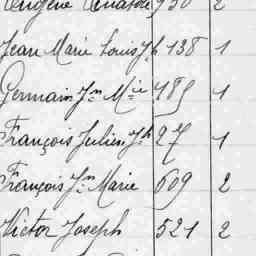 Eugène Anatole 950 2
Jean Marie Louis Jh 138 1
Germain Jn Mie 485 1
François Julien Jh 27 1
François Jn Marie 609 2
Victor Joseph 521 2